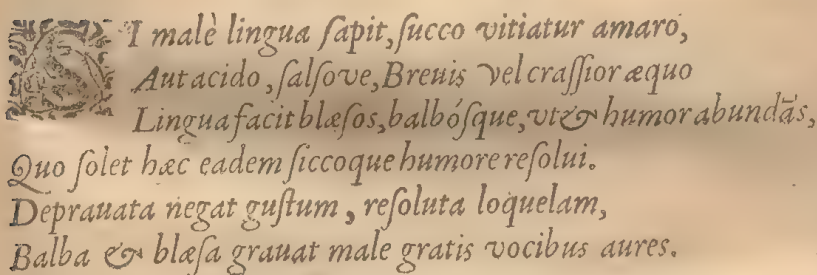 SI malè lingua ſapit, ſucco vitiatur amaro,
Aut acido, ſalſove, Breuis vel craſſior æquo
Lingua facit blæſos, balbóſque, vt & humor abundãs,
Quo ſolet hæc eadem ſiccoque humore reſolui.
Deprauata negat guſtum, reſoluta loquelam,
Balba & blæſa grauat male gratis vocibus aures.